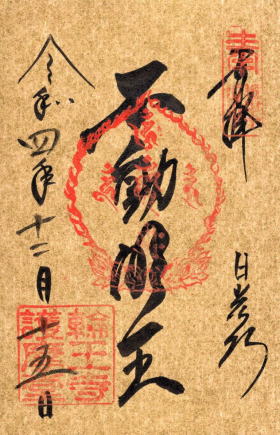 奉拝
日光山
不動明王
令和四年十二月十五日
輪王寺
護摩堂